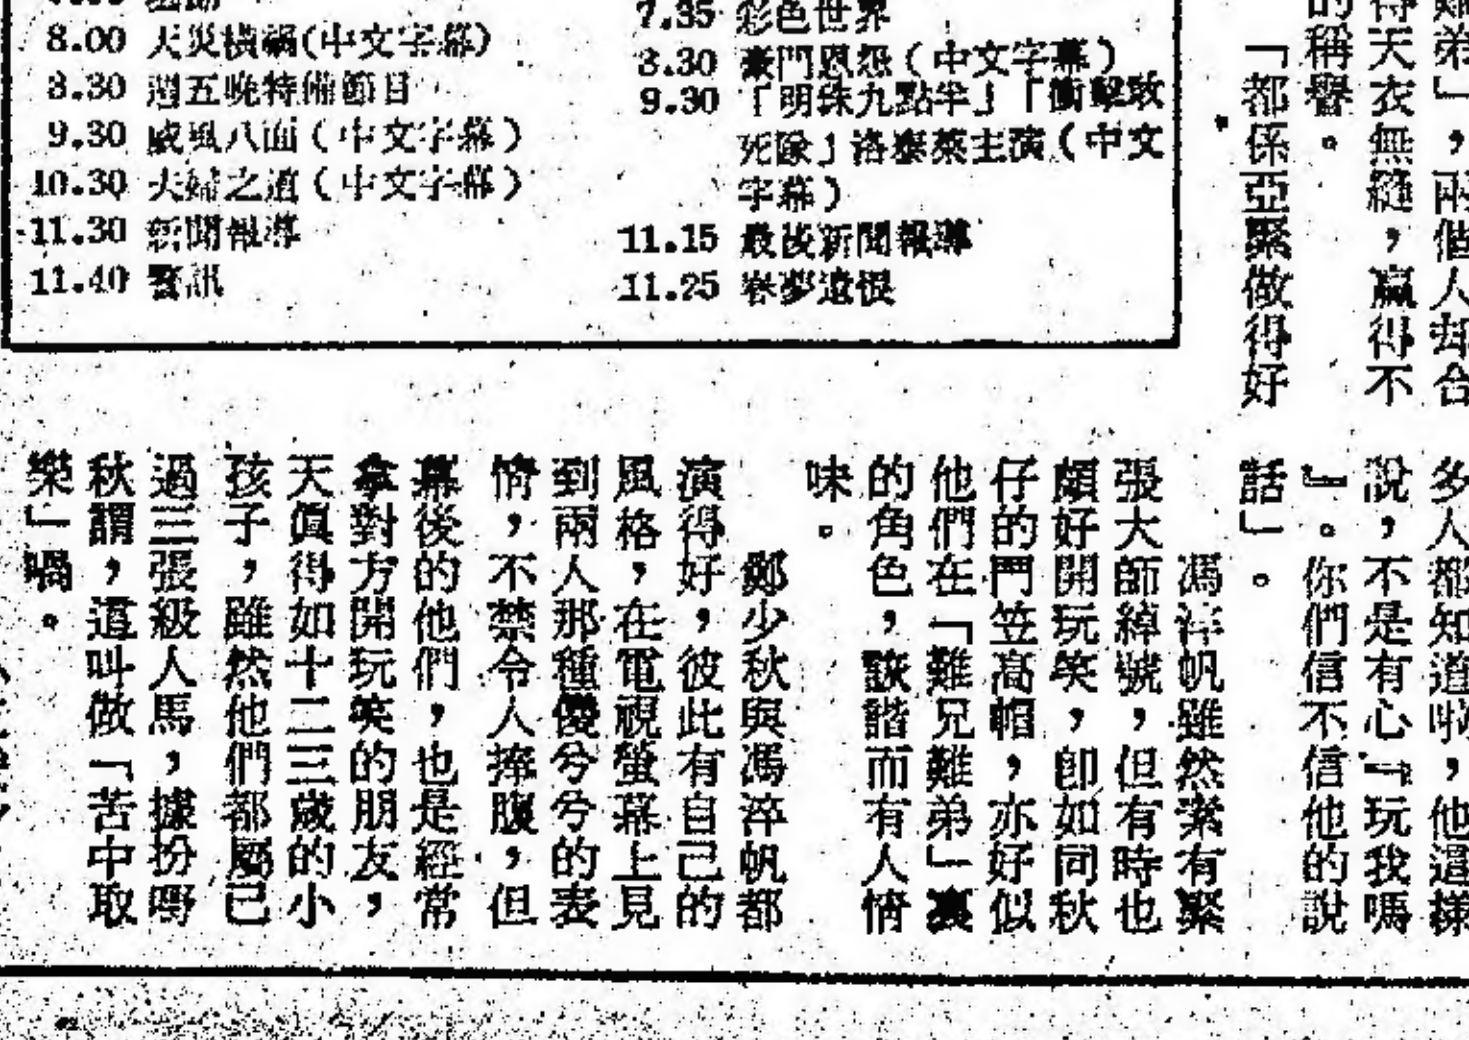 8.00 天災橫禍(中文字幕)
8.30 週五晚特備節目
9.30 威風八面(中文字幕)
10.30 夫婦之道(中文字幕)
11.30 新聞報導
11.40 警訊
7.35 彩色世界
8.30 豪門恩怨(中文字幕)
9.30 「明珠九點半」「衝擊敢
死隊」洛泰萊主演(中文
字幕)
11.15 最後新聞報導
11.25 春夢遺恨
弟」,兩個人却合
得天衣無縫,贏得不
的稱譽。
「都係亞緊做得好
多人都知道啦,他這樣
說,不是有心『玩我嗎
』。你們信不信他的說
話」。
馮淬帆雖然素有緊
張大師綽號,但有時也
頗好開玩笑,即如同秋
仔的鬥笠高帽,亦好似
他們在「難兄難弟」裏
的角色,詼諧而有人情
味。
鄭少秋與馮淬帆都
演得好,彼此有自己的
風格,在電視螢幕上見
到兩人那種傻兮兮的表
情,不禁令人捧腹,但
幕後的他們,也是經常
拿對方開玩笑的朋友,
天眞得如十二三歲的小
孩子,雖然他們都屬已
過三張級人馬,據扮嘢
秋謂,道叫做「苦中取
樂」喎。